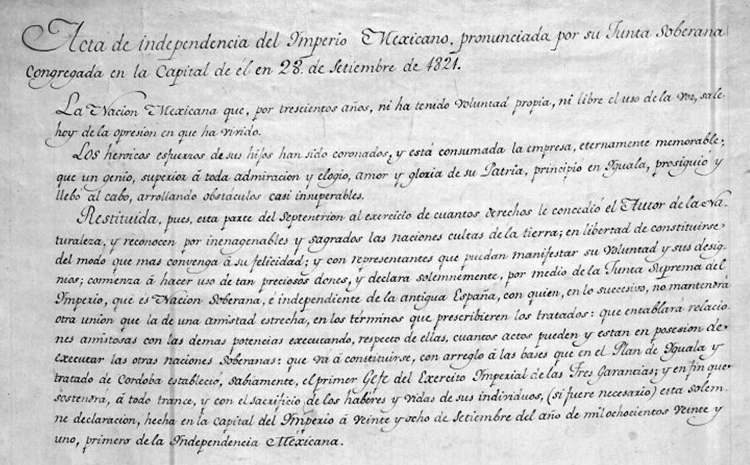 Acta de independencia del Imperio Mexicano, pronunciada por su Junta Soberana
Congregada en la Capital de él en 28. de Setiembre de 1821.
La Nacion Mexicana que, por trescientos años, ni ha tenido voluntad propia, ni libre el uso de la voz, sale
hoy de la opresion en que ha vivido.
Los heroicos esfuerzos de sus hijos han sido coronados, y está consumada la empresa, eternamente memorable,
que un genio, superior á toda admiracion y elogio, amor y gloria de su Patria, principió en Iguala, prosiguió y
llebó al cabo, arrollando obstáculos casi insuperables.
Restituida, pues, esta parte del Septentrion al exercicio de cuantos derechos le concedió el Autor de la Na-
turaleza, y reconocen por inenagenables y sagrados las naciones cultas de la tierra; en libertad de constituirse
del modo que mas convenga á su felicidad; y con representantes que puedan manifestar su voluntad y sus desig-
nios; comienza á hacer uso de tan preciosos dones, y declara solemnemente, por medio de la Junta Suprema del
Imperio, que es Nacion Soberana, é independiente de la antigua España, con quien, en lo succesivo, no mantendrá
otra union que la de una amistad estrecha, en los términos que prescribieren los tratados: que entablará relacio-
nes amistosas con las demas potencias executando, respecto de ellas, cuantos actos pueden y estan en posesion de
executar las otras naciones Soberanas: que vá á constituirse, con arreglo á las bases que en el Plan de Iguala y
tratado de Cordoba estableció, sabiamente, el primer Gefe del Exercito Imperial de las Tres Garantias; y en fin que
sostendrá, á todo trance, y con el sacrificio de los haberes y vidas de sus individuos, (si fuere necesario) esta solem-
ne declaracion, hecha en la Capital del Imperio á veinte y ocho de Setiembre del año de mil ochocientos veinte y
uno, primero de la Independencia Mexicana.